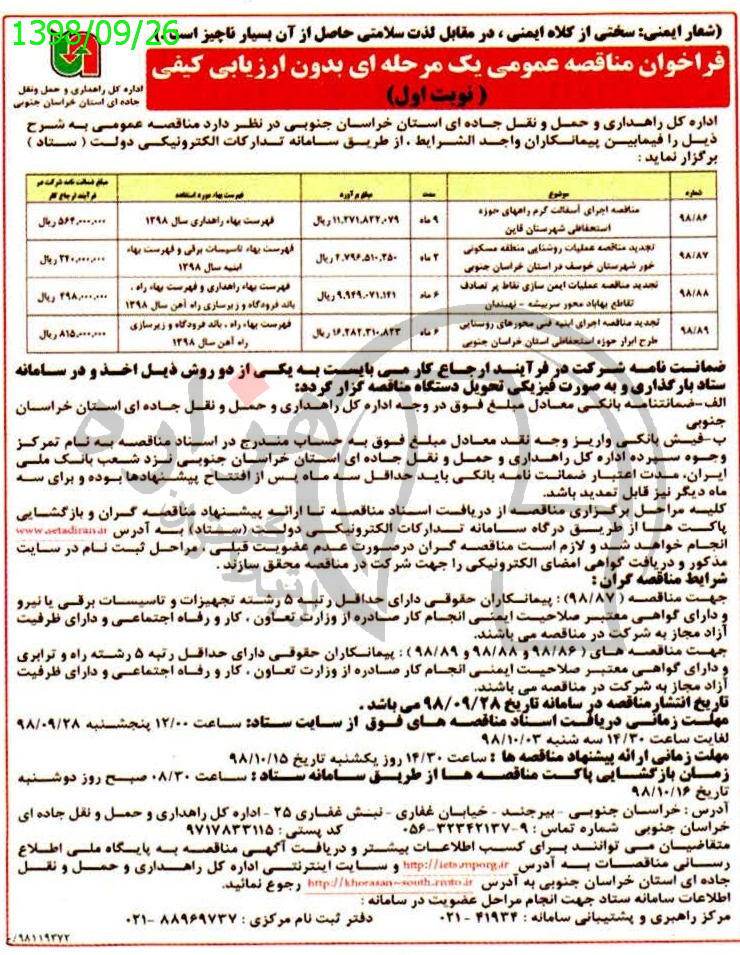 1398/09/26
(شعار ایمنی: سختی از کلاه ایمنی ، در مقابل لذت سلامتی حاصل از آن بسیار ناچیز است.)
فراخوان مناقصه عمومی یک مرحله ای بدون ارزیابی کیفی
( نوبت اول)
اداره کل راهداری و حمل ونقل
جاده ای استان خراسان جنوبی
اداره کل راهداری و حمل و نقل جاده ای استان خراسان جنوبی در نظر دارد مناقصه عمومی به شرح
ذیل را فیمابین پیمانکاران واجد الشرایط ، از طریق سامانه تدارکات الکترونیکی دولت ( ستاد )
برگزار نماید :
شماره موضوع مدت مبلغ برآورد فهرست بهاء مورد استفاده مبلغ ضمانت نامه شرکت در فرآیند ارجاع کار
۹۸/۸۶ مناقصه اجرای آسفالت گرم راههای حوزه استحفاظی شهرستان قاین ۹ ماه ۱۱,۲۷۱,۸۲۲,۰۷۹ ریال فهرست بهاء راهداری سال ۱۳۹۸ ۵۶۴,۰۰۰,۰۰۰ ریال
۹۸/۸۷ تجدید مناقصه عملیات روشنایی منطقه مسکونی خور شهرستان خوسف در استان خراسان جنوبی ۲ ماه ۴,۷۹۶,۵۱۰,۲۵۰ ریال فهرست بهاء تاسیسات برقی و فهرست بهاء ابنیه سال ۱۳۹۸ ۲۴۰,۰۰۰,۰۰۰ ریال
۹۸/۸۸ تجدید مناقصه عملیات ایمن سازی نقاط پر تصادف تقاطع بهاباد محور سربیشه - نهبندان ۶ ماه ۹,۹۴۹,۰۷۱,۱۴۱ ریال فهرست بهاء راهداری و فهرست بهاء راه ، باند فرودگاه و زیرسازی راه آهن سال ۱۳۹۸ ۴۹۸,۰۰۰,۰۰۰ ریال
۹۸/۸۹ تجدید مناقصه اجرای ابنیه فنی محورهای روستایی طرح ابرار حوزه استحفاظی استان خراسان جنوبی ۶ ماه ۱۶,۲۸۲,۳۱۰,۸۲۳ ریال فهرست بهاء راه ، باند فرودگاه و زیرسازی راه آهن سال ۱۳۹۸ ۸۱۵,۰۰۰,۰۰۰ ریال
ضمانت نامه شرکت در فرآیند ارجاع کار می بایست به یکی از دو روش ذیل اخذ و در سامانه
ستاد بارگذاری و به صورت فیزیکی تحویل دستگاه مناقصه گزار گردد:
الف-ضمانتنامه بانکی معادل مبلغ فوق در وجه اداره کل راهداری و حمل و نقل جاده ای استان خراسان
جنوبی
ب-فیش بانکی واریز وجه نقد معادل مبلغ فوق به حساب مندرج در اسناد مناقصه به نام تمرکز
وجوه سپرده اداره کل راهداری و حمل و نقل جاده ای استان خراسان جنوبی نزد شعب بانک ملی
ایران، مدت اعتبار ضمانت نامه بانکی باید حداقل سه ماه پس از افتتاح پیشنهادها بوده و برای سه
ماه دیگر نیز قابل تمدید باشد.
کلیه مراحل برگزاری مناقصه از دریافت اسناد مناقصه تا ارائه پیشنهاد مناقصه گران و بازگشایی
پاکت ها از طریق درگاه سامانه تدارکات الکترونیکی دولت (ستاد) به آدرس www.setadiran.ir
انجام خواهد شد و لازم است مناقصه گران درصورت عدم عضویت قبلی ، مراحل ثبت نام در سایت
مذکور و دریافت گواهی امضای الکترونیکی را جهت شرکت در مناقصه محقق سازند .
شرایط مناقصه گران :
جهت مناقصه ( ۹۸/۸۷) : پیمانکاران حقوقی دارای حداقل رتبه ۵ رشته تجهیزات و تاسیسات برقی یا نیرو
و دارای گواهی معتبر صلاحیت ایمنی انجام کار صادره از وزارت تعاون ، کار و رفاه اجتماعی و دارای ظرفیت
آزاد مجاز به شرکت در مناقصه می باشند.
جهت مناقصه های ( ۹۸/۸۶ و ۹۸/۸۸ و ۹۸/۸۹ ) : پیمانکاران حقوقی دارای حداقل رتبه ۵ رشته راه و ترابری
و دارای گواهی معتبر صلاحیت ایمنی انجام کار صادره از وزارت تعاون ، کار و رفاه اجتماعی و دارای ظرفیت
آزاد مجاز به شرکت در مناقصه می باشند.
تاریخ انتشار مناقصه در سامانه تاریخ ۹۸/۰۹/۲۸ می باشد .
مهلت زمانی دریافت اسناد مناقصه های فوق از سایت ستاد: ساعت ۱۲/۰۰ پنجشنبه ۹۸/۰۹/۲۸
لغایت ساعت ۱۴/۳۰ سه شنبه ۹۸/۱۰/۰۳
مهلت زمانی ارائه پیشنهاد مناقصه ها : ساعت ۱۴/۳۰ روز یکشنبه تاریخ ۹۸/۱۰/۱۵
زمان بازگشایی پاکت مناقصه ها از طریق سامانه ستاد : ساعت ۰۸/۳۰ صبح روز دوشنبه
تاریخ ۹۸/۱۰/۱۶
آدرس : خراسان جنوبی - بیرجند - خیابان غفاری - نبش غفاری ۲۵ - اداره کل راهداری و حمل و نقل جاده ای
خراسان جنوبی شماره تماس : ۹-۳۲۳۴۲۱۳۷-۰۵۶ کد پستی : ۹۷۱۷۸۳۳۱۱۵
متقاضیان می توانند برای کسب اطلاعات بیشتر و دریافت آگهی مناقصه به پایگاه ملی اطلاع
رسانی مناقصات به آدرس http://iets.mporg.ir و سایت اینترنتی اداره کل راهداری و حمل و نقل
جاده ای استان خراسان جنوبی به آدرس http://khorasan-south.rmto.ir رجوع نمائید.
اطلاعات سامانه ستاد جهت انجام مراحل عضویت در سامانه :
مرکز راهبری و پشتیبانی سامانه : ۴۱۹۳۴ - ۰۲۱ دفتر ثبت نام مرکزی : ۸۸۹۶۹۷۳۷ -۰۲۱
۹۸۱۱۹۳۷۲/
هزاره